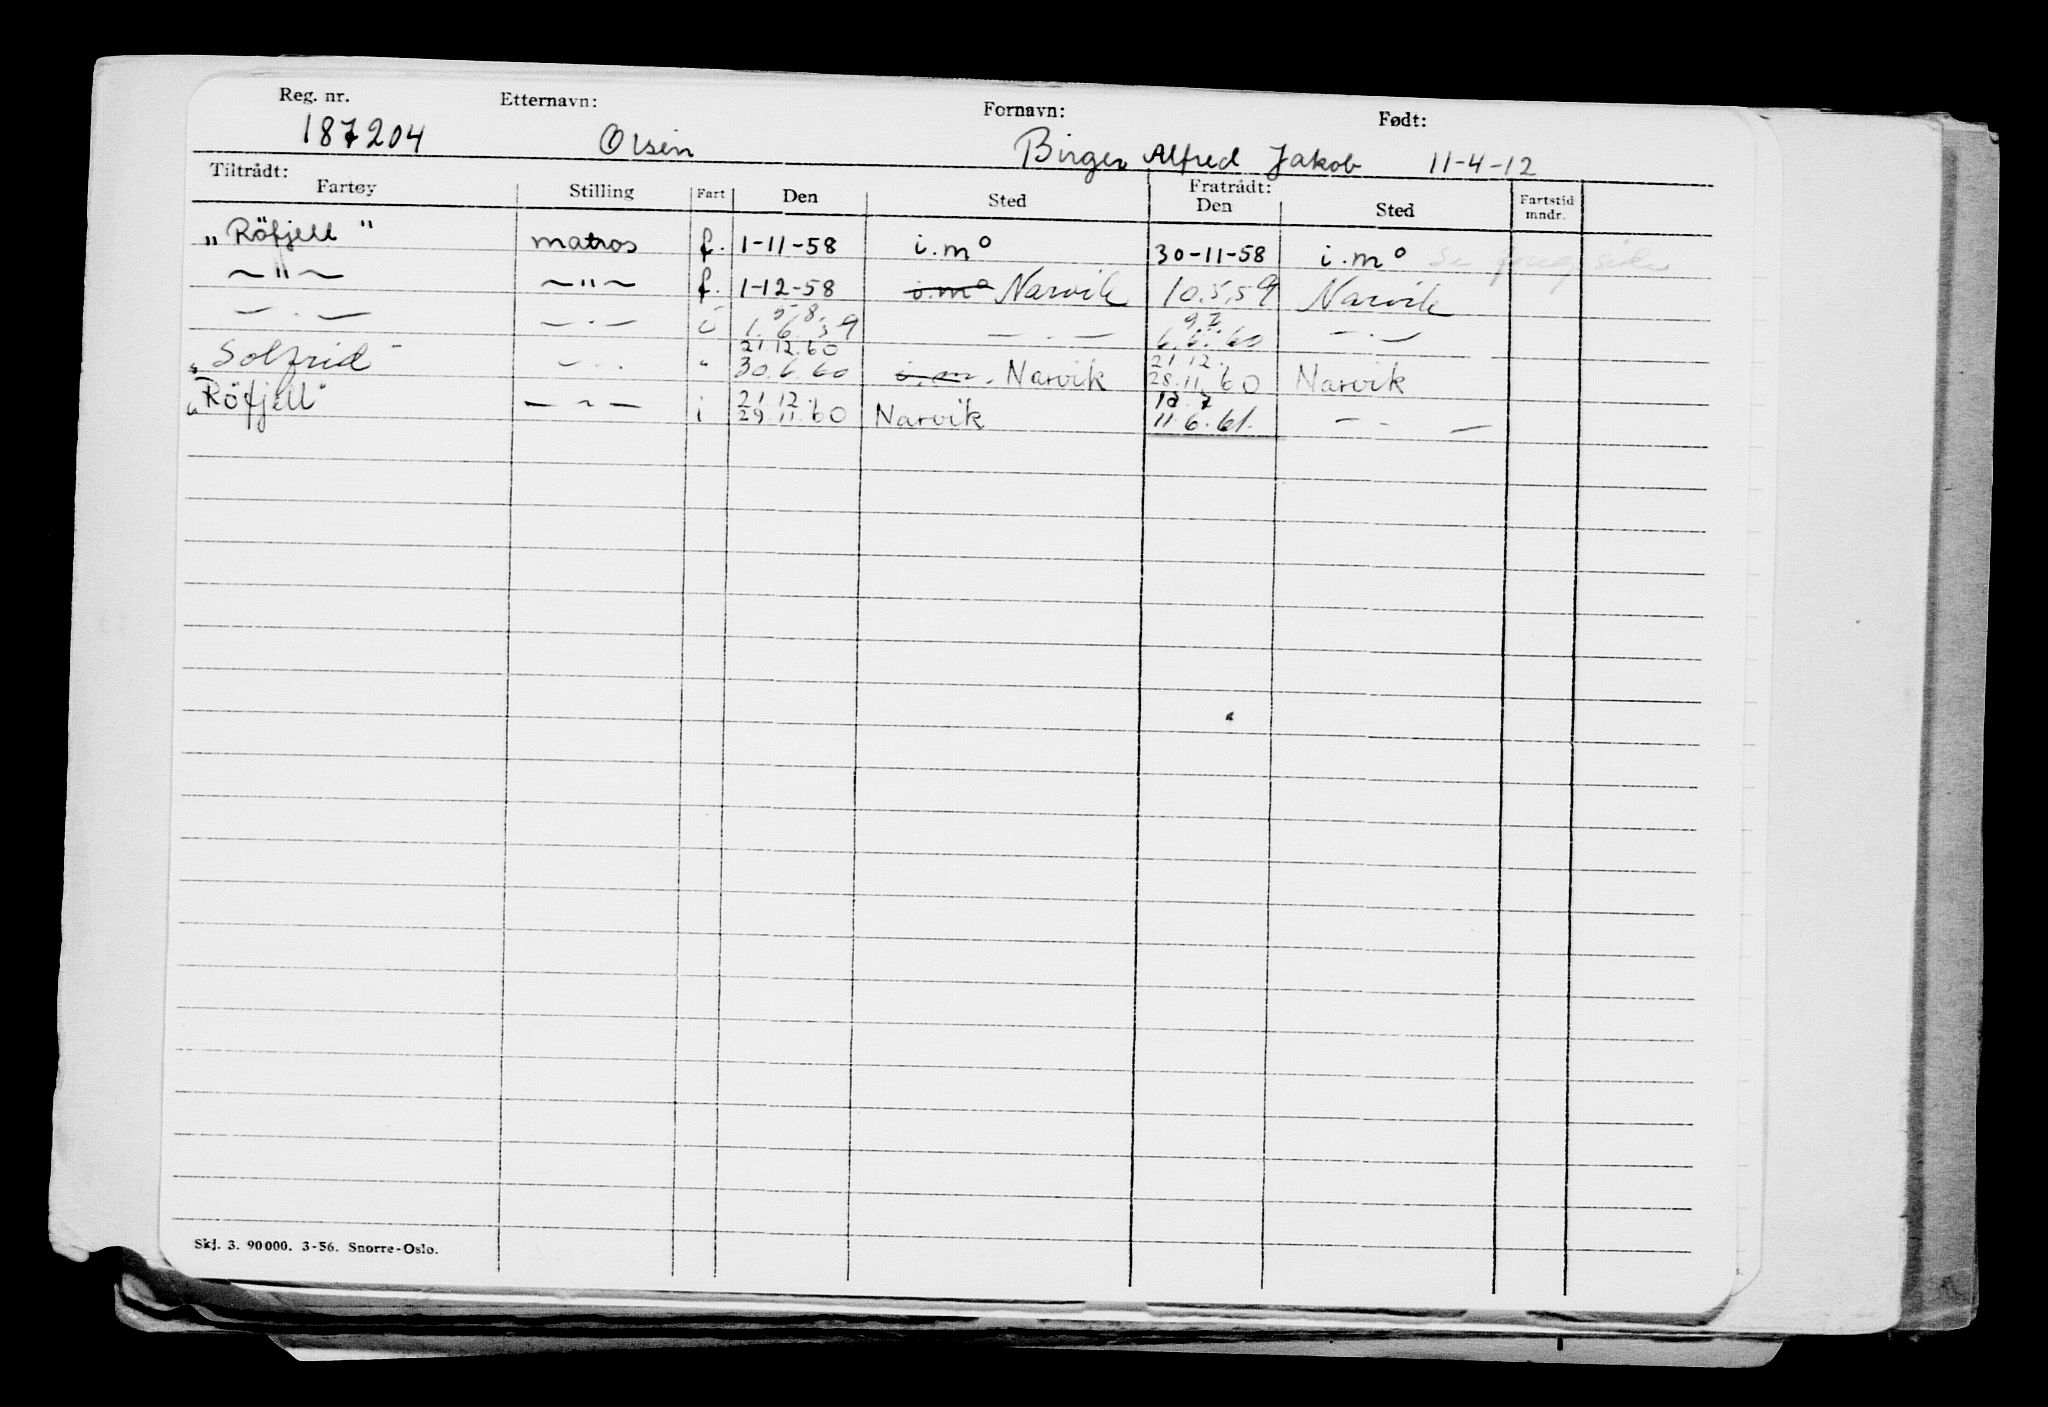 Reg. nr. Etternavn: Fornavn: Født:
187204 Olsen Birger Alfred Jakob 11-4-12
Tiltrådt: Fratrådt:
Fartøy Stilling Fart Den Sted Den Sted Fartstid mndr.
„Röfjell" matros f. 1-11-58 i.mº 30-11-58 i.mº Se
~"~ ~"~ f. 1-12-58 i.mº Narvik 10.5.59 Narvik
5 8. 9 7.
— . — — . — i 1. 6. 59 — . — 6. 6. 60 — . —
21.12.60 21.12.
„Solfrid" — . . " 30.6.60 i.m. Narvik 28.11.60 Narvik
21.12. 12. 7
„Röfjell" — ~ — i 29.11.60 Narvik 11.6.61. — - —
Skj. 3. 90000. 3-56. Snorre-Oslo.